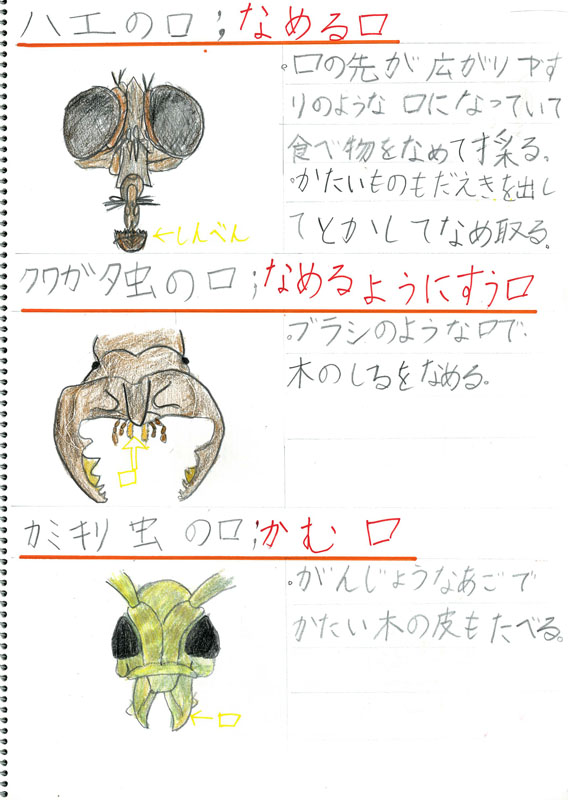 ハエの口;なめる口
。口の先が広がりやす
りのような口になっていて
食べ物をなめて採る。
。かたいものもだえきを出し
てとかしてなめ取る。
←しんべん
クワガタ虫の口;なめるようにすう口
。ブラシのような口で
木のしるをなめる。
口
カミキリ虫の口;かむ口
。がんじょうなあごで
かたい木の皮もたべる。
←口